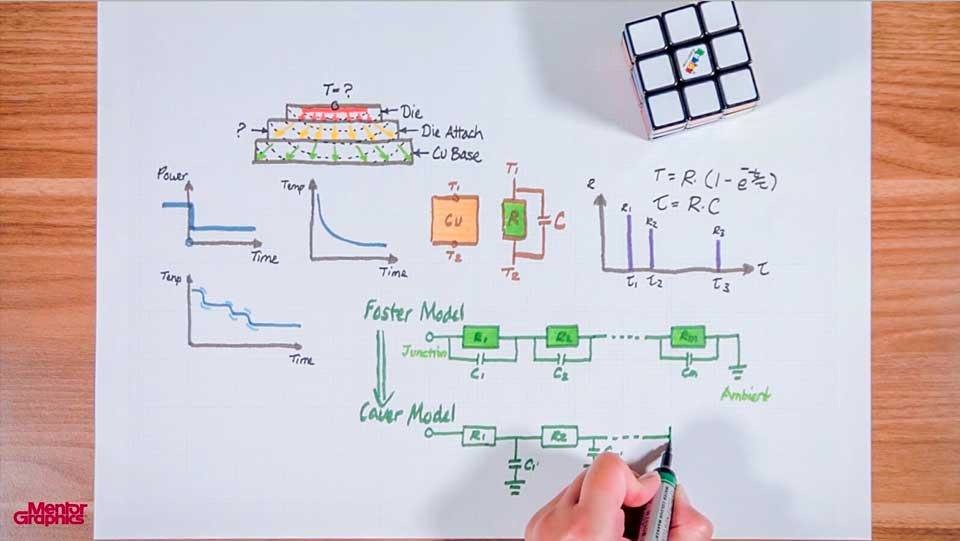 T=?
Die
?
Die Attach
Cu Base
Power
Time
Temp
Time
T1
Cu
T2
T1
R
C
T2
R
R1
R2
R3
τ1
τ2
τ3
τ
T = R·(1 - e^-t/τ)
τ = R·C
Temp
Time
Foster Model
Junction
R1
R2
Rn
C1
C2
Cn
Ambient
Cauer Model
R1
R2
C1'
Mentor
Graphics